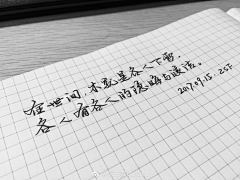 在世间，本就是各人下雪，
各人有各人的隐晦与皎洁。
2017.09.15.